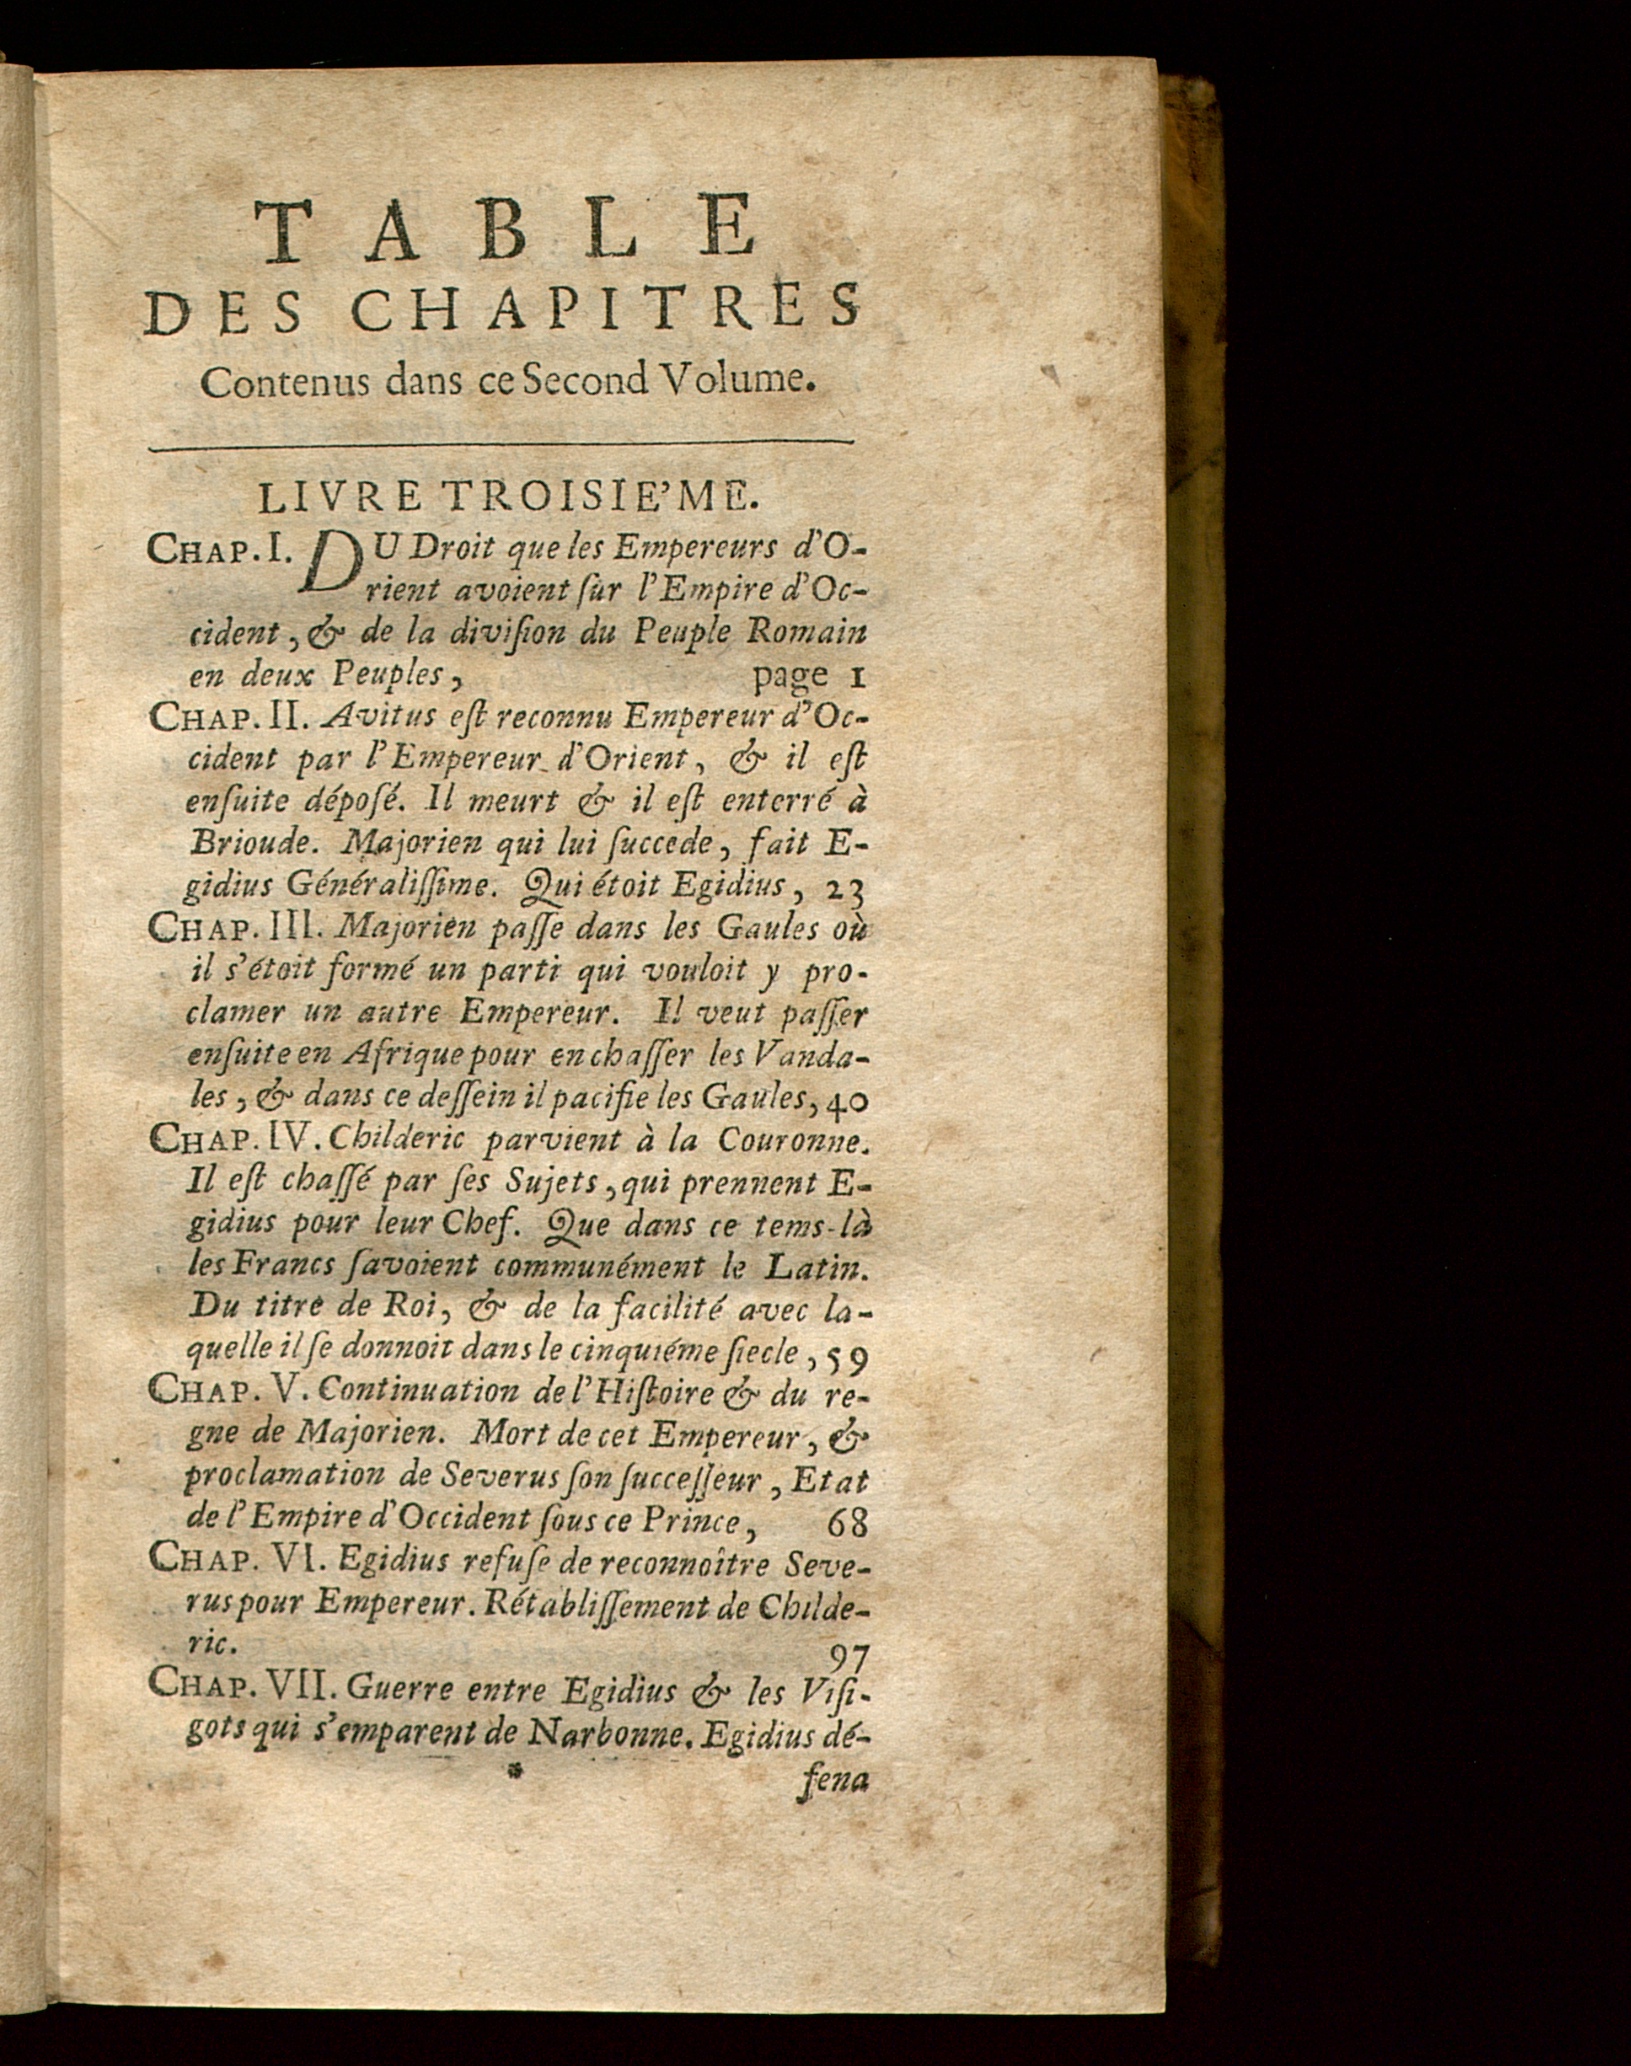 TABLE
DES CHAPITRES
Contenus dans ce Second Volume.
LIVRE TROISIE'ME.
CHAP. I. DU Droit que les Empereurs d'O-
rient avoient ſur l'Empire d'Oc-
cident, & de la diviſion du Peuple Romain
en deux Peuples, page 1
CHAP. II. Avitus eſt reconnu Empereur d'Oc-
cident par l'Empereur d'Orient, & il eſt
enſuite dépoſé. Il meurt & il eſt enterré à
Brioude. Majorien qui lui ſuccede, fait E-
gidius Généraliſſime. Qui étoit Egidius, 23
CHAP. III. Majorien paſſe dans les Gaules où
il s'étoit formé un parti qui vouloit y pro-
clamer un autre Empereur. Il veut paſſer
enſuite en Afrique pour en chaſſer les Vanda-
les, & dans ce deſſein il pacifie les Gaules, 40
CHAP. IV. Childeric parvient à la Couronne.
Il eſt chaſſé par ſes Sujets, qui prennent E-
gidius pour leur Chef. Que dans ce tems-là
les Francs ſavoient communément le Latin.
Du titre de Roi, & de la facilité avec la-
quelle il ſe donnoit dans le cinquiéme ſiecle, 59
CHAP. V. Continuation de l'Hiſtoire & du re-
gne de Majorien. Mort de cet Empereur, &
proclamation de Severus ſon ſucceſſeur, Etat
de l'Empire d'Occident ſous ce Prince, 68
CHAP. VI. Egidius refuſe de reconnoître Seve-
rus pour Empereur. Rétabliſſement de Childe-
ric. 97
CHAP. VII. Guerre entre Egidius & les Viſi-
gots qui s'emparent de Narbonne. Egidius dé-
* fena